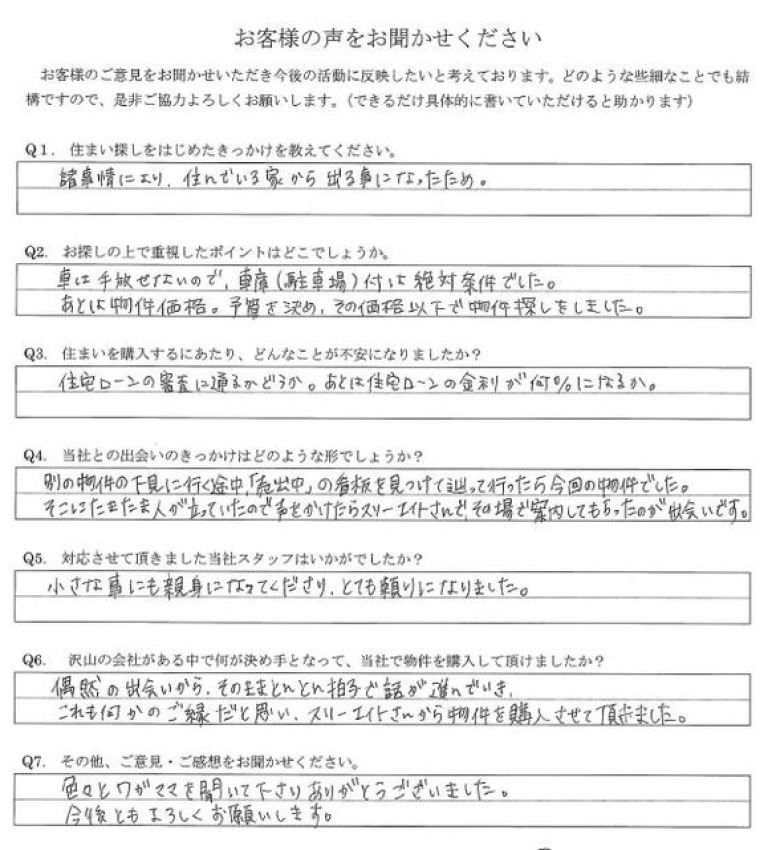 お客様の声をお聞かせください
お客様のご意見をお聞かせいただき今後の活動に反映したいと考えております。どのような些細なことでも結
構ですので、是非ご協力よろしくお願いします。（できるだけ具体的に書いていただけると助かります）
Q1. 住まい探しをはじめたきっかけを教えてください。
諸事情により、住んでいる家から出る事になったため。
Q2. お探しの上で重視したポイントはどこでしょうか。
車は手放せないので、車庫(駐車場)付は絶対条件でした。
あとは物件価格。予算を決め、その価格以下で物件探しをしました。
Q3. 住まいを購入するにあたり、どんなことが不安になりましたか？
住宅ローンの審査に通るかどうか。あとは住宅ローンの金利が何%になるか。
Q4. 当社との出会いのきっかけはどのような形でしょうか？
別の物件の下見に行く途中、「売出中」の看板を見つけて辿って行ったら今回の物件でした。
そこにたまたま人が立っていたので声をかけたらスリーエイトさんで、その場で案内してもらったのが出会いです。
Q5. 対応させて頂きました当社スタッフはいかがでしたか？
小さな事にも親身になってくださり、とても頼りになりました。
Q6. 沢山の会社がある中で何が決め手となって、当社で物件を購入して頂けましたか？
偶然の出会いから、そのままとんとん拍子で話が進んでいき、
これも何かのご縁だと思い、スリーエイトさんから物件を購入させて頂きました。
Q7. その他、ご意見・ご感想をお聞かせください。
色々とワガママを聞いて下さりありがとうございました。
今後ともよろしくお願いします。